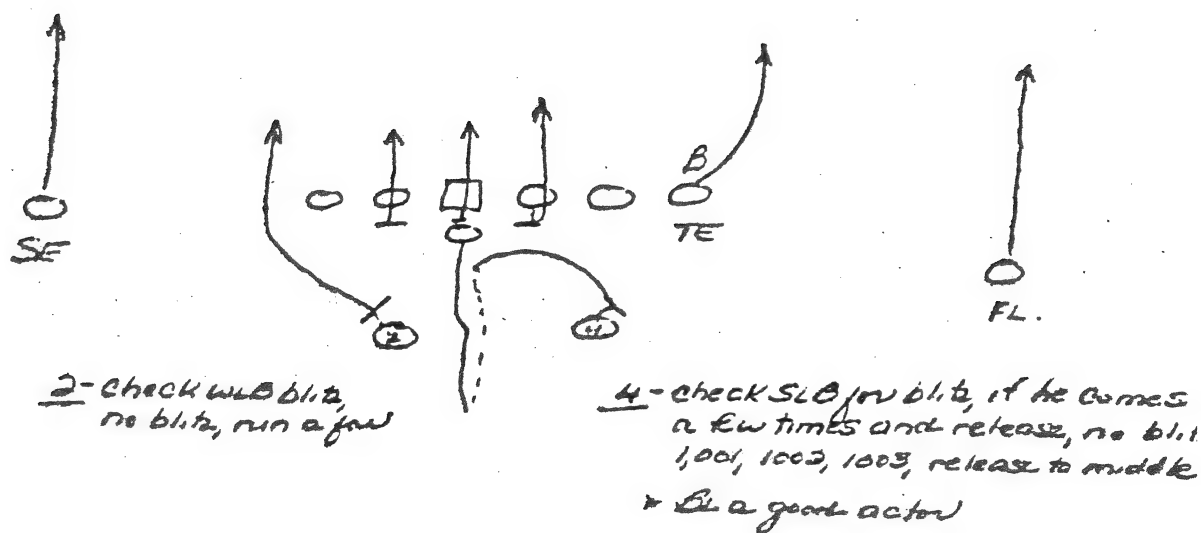 B
SE
TE
FL.
2
4
2 - check WLB blitz,
no blitz, run a
4 - check SLB for blitz, if he comes
a few times and release, no blit
1,001, 1002, 1003, release to middle
* Be a good actor